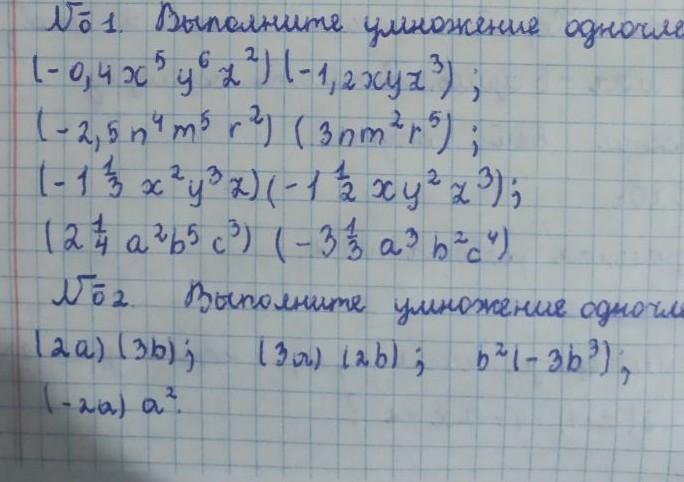 №1. Выполните умножение одночле
(-0,4x⁵y⁶z²)(-1,2xyz³);
(-2,5n⁴m⁵r²)(3nm²r⁵);
(-1 1/3 x²y³z)(-1 1/2 xy²z³);
(2 1/4 a²b⁵c³)(-3 1/3 a³b²c⁴)
№2. Выполните умножение одночле
(2a)(3b); (3a)(2b); b²(-3b³);
(-2a)a².